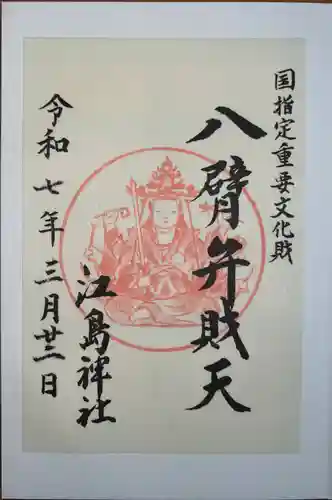 国指定重要文化財
八臂弁財天
江島神社
令和七年三月廿三日